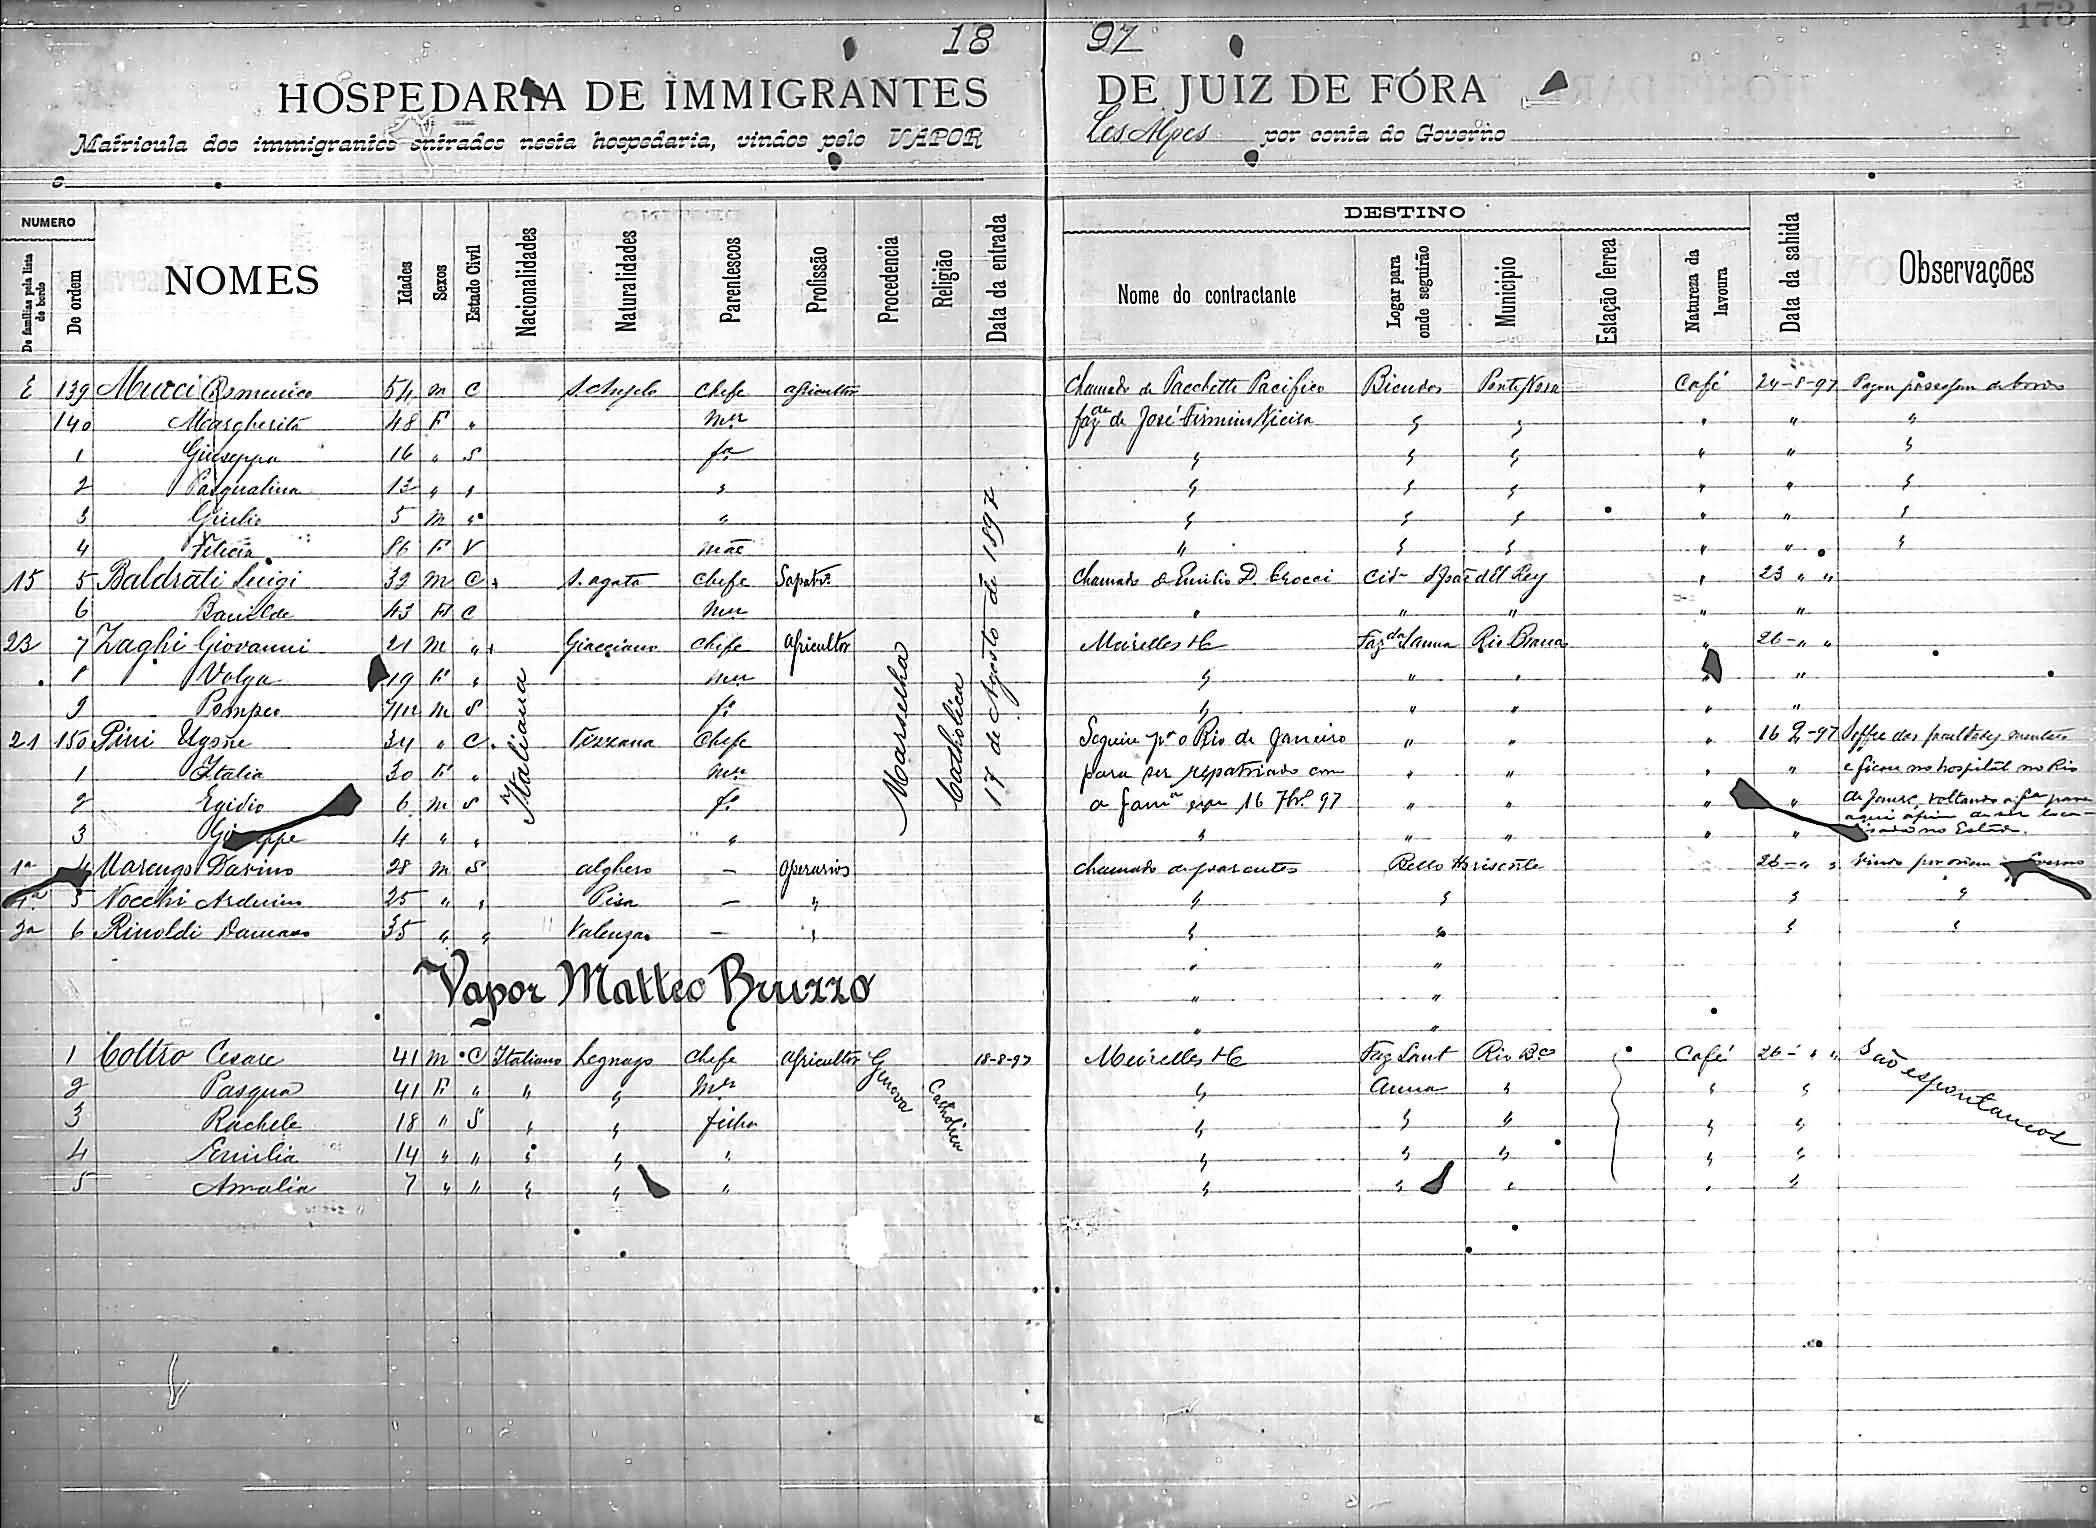 173
18 97
HOSPEDARIA DE IMMIGRANTES DE JUIZ DE FÓRA
Matricula dos immigrantes entrados nesta hospedaria, vindos pelo VAPOR Les Alpes por conta do Governo
NUMERO DESTINO
De familias pela lista de bordo De ordem NOMES Idades Sexos Estado Civil Nacionalidades Naturalidades Parentescos Profissão Procedencia Religião Data da entrada Nome do contractante Logar para onde seguirão Municipio Estação ferrea Natureza da lavoura Data da sahida Observações
139 Mucci Domenico 54 m C S. Angelo Chefe agricultor Chamado de Pacchetti Pacifico Bicudos Ponte Nova Café 24-8-97 Pagou passagem de bordo
140 Margherita 48 F " mer fazda de José Firmino Vieira " " " " "
1 Giuseppa 16 " S fa " " " " " "
2 Pasqualina 13 " " " " " " " " "
3 Giulio 5 m " " " " " " " "
4 Felicia 86 F V mãe " " " " " "
15 5 Baldrati Luigi 32 m C S. agata Chefe Sapatro Chamado de Emilio D. Crocci Cid- S João d'El Rey " 23 " "
6 43 F C mer " " " " "
23 7 Zaghi Giovanni 21 m " Giacciano Chefe agricultor Meirelles & C Fazda Sanna Rio Branco " 26 - " "
8 Volga 19 F " mer " " " " "
9 Pompeo 7m m S fo " " " " "
21 150 Pini Ugone 34 " C Chefe Seguiu pa o Rio de Janeiro " " " 16 9-97 Soffre das faculdades mentaes
1 Italia 30 F " mer para ser repatriado com " " " " e ficou no hospital no Rio
2 Egidio 6 m S fo a fama em 16 7bro 97 " " " " de Janro, voltando a fa para
aqui afim de ser loca-
3 Giuseppe 4 " " " " " " " " lisada no Estado.
1a 4 Marengo Davino 28 m S alghero — operarios chamado de parentes Bello Horisonte 26 - " " Vindo por ordem Governo
5 Nocchi Arduino 25 " " Pisa — " " " " "
3a 6 Rinoldi Damaso 35 " " Valenza — " " " " "
Italiana
Marselha
Catholica
17 de Agosto de 1897
" "
Vapor Matteo Bruzzo " "
" "
1 Coltro Cesare 41 m C Italiano Legnago Chefe agricultor Genova Catholica 18-8-97 Meirelles & C Faz Sant Rio Bco Café 26 - " " São espontaneos
2 Pasqua 41 F " " " Mer " Anna " " "
3 Rachele 18 " S " " filha " " " " "
4 Emilia 14 " " " " " " " " " "
5 Amalia 7 " " " " " " " " " "